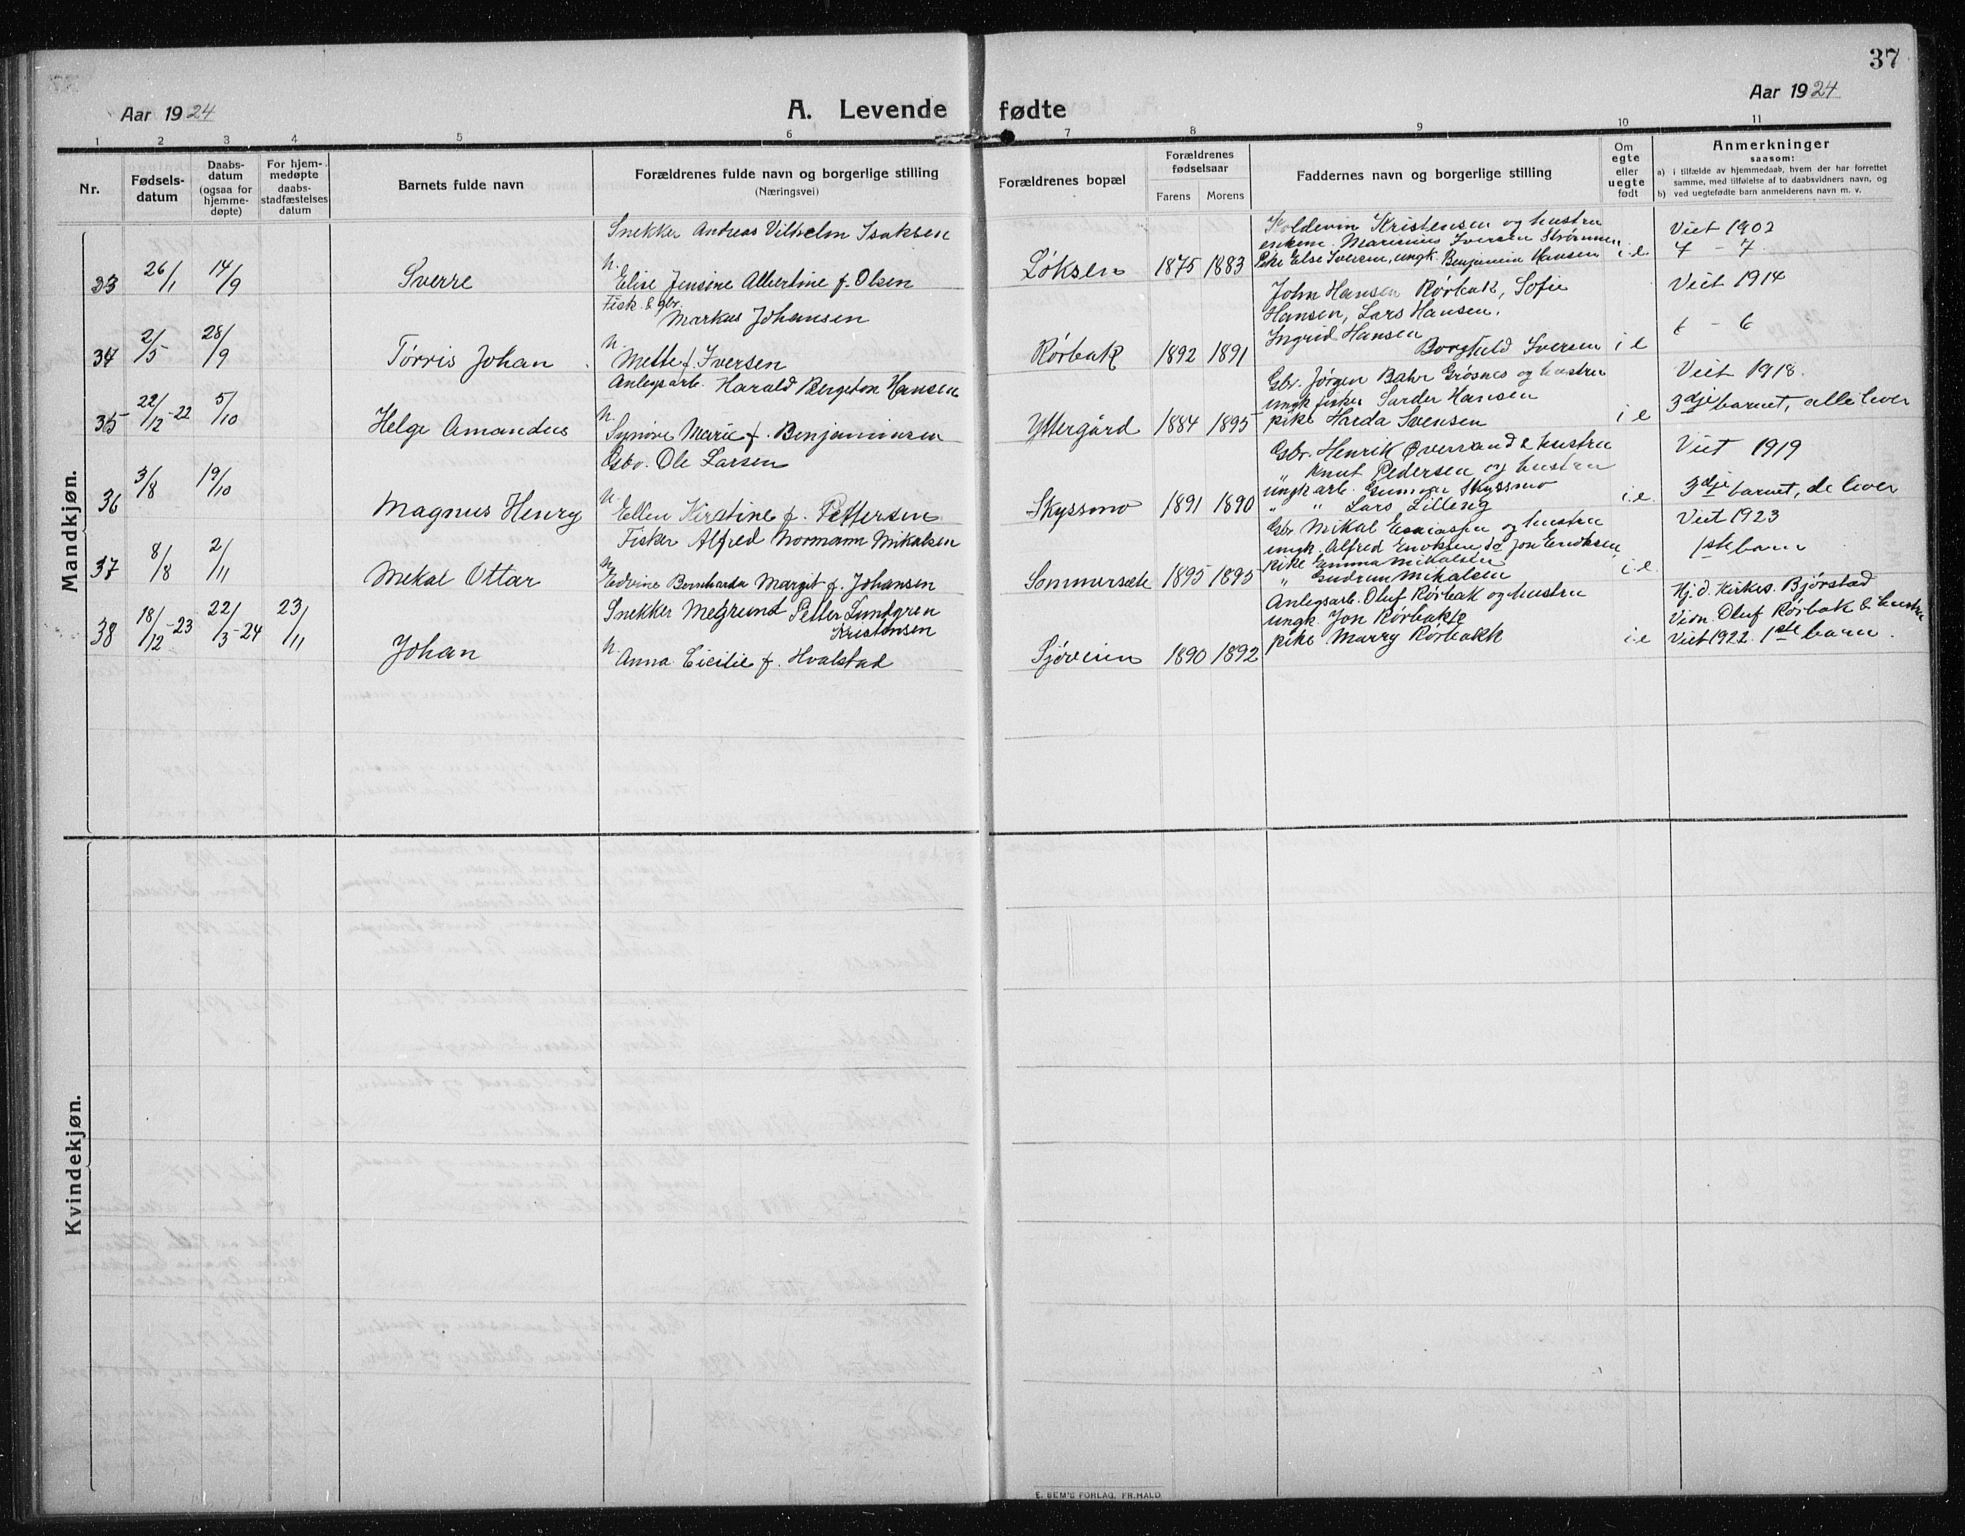 37
Aar 1924
A. Levende fødte
Aar 1924
1 2 3 4 5 6 7 8 9 10 11
Nr.
Fødsels-
datum
Daabs-
datum
(ogsaa for
hjemme-
døpte)
For hjem-
medøpte
daabs-
stadfæstelses
datum
Barnets fulde navn
Forældrenes fulde navn og borgerlige stilling
(Næringsvei)
Forældrenes bopæl
Forældrenes
fødselsaar
Farens Morens
Faddernes navn og borgerlige stilling
Om
egte
eller
uegte
født
Anmerkninger
saasom:
a) i tilfælde av hjemmedaab, hvem der har forrettet
samme, med tilføielse af to daabsvidners navn, og
b) ved uegtefødte barn anmelderens navn m. v.
Mandkjøn.
33 26/1 14/9 Sverre
Snekker Andreas Vilhelm Isaksen
h. Elise Jensine Albertine f. Olsen
Løksen 1875 1883
Koldevin Kristensen og hustru
enkem. Marenius Iversen Strømmen
Pike Else Iversen, ungk. Benjamin Hansen
i.e.
Viet 1902
7 - 7
34 2/5 28/9 Tørris Johan
Fisk. & gbr.
Markus Johansen
h. Mette f. Iversen
Rørbak 1892 1891
John Hansen Rørbak, Sofie
Hansen, Lars Hansen,
Ingrid Hansen
Borghild Iversen
i e
Viet 1914
6 - 6
35 22/12-22 5/10 Helge Amandus
Anlegsarb. Harald Bergeton Hansen
h. Synøve Marie f. Benjaminsen
Yttergård 1884 1895
Gbr. Jørgen Bahr Grøsnes og hustru
ungk fisker Sarder Hansen
pike Harda Svensen
i e
Viet 1918.
3dje barnet, alle lever
36 3/8 19/10 Magnus Henry
Gbr. Ole Larsen
h. Ellen Kirstine f. Pettersen
Skyssmo 1891 1890
Gbr. Henrik Øversand & hustru
" Knut Pedersen og hustru
ungk arb. Gunnar Skyssmo
" " Lars Lilleng
i.e.
Viet 1919
3dje barnet, de lever
37 8/8 2/11 Mekal Ottar
Fisker Alfred Normann Mikalsen
h. Edvine Bernharda Margit f. Johansen
Sommersæte 1895 1895
Gbr. Mikal Esaiasen og hustru
ungk. Alfred Enoksen do Jon Enoksen
pike Emma Mikalsen
" Gudrun Mikalsen
i.e.
Viet 1923
1ste barn
38 18/12-23 22/3-24 23/11 Johan
Snekker Megrund Petter Lundgren
Kristensen
h. Anna Cicilie f. Hvalstad
Sjøveien 1890 1892
Anlegsarb. Oluf Rørbak og hustru
ungk. Jon Rørbakk
pike Marry Rørbakk
i.e
Hj.d. Kirkes. Bjørstad
Vidn. Oluf Rørbak & hustru
Viet 1922. 1ste barn.
Kvindekjøn.
E. SEM'S FORLAG, FR.HALD